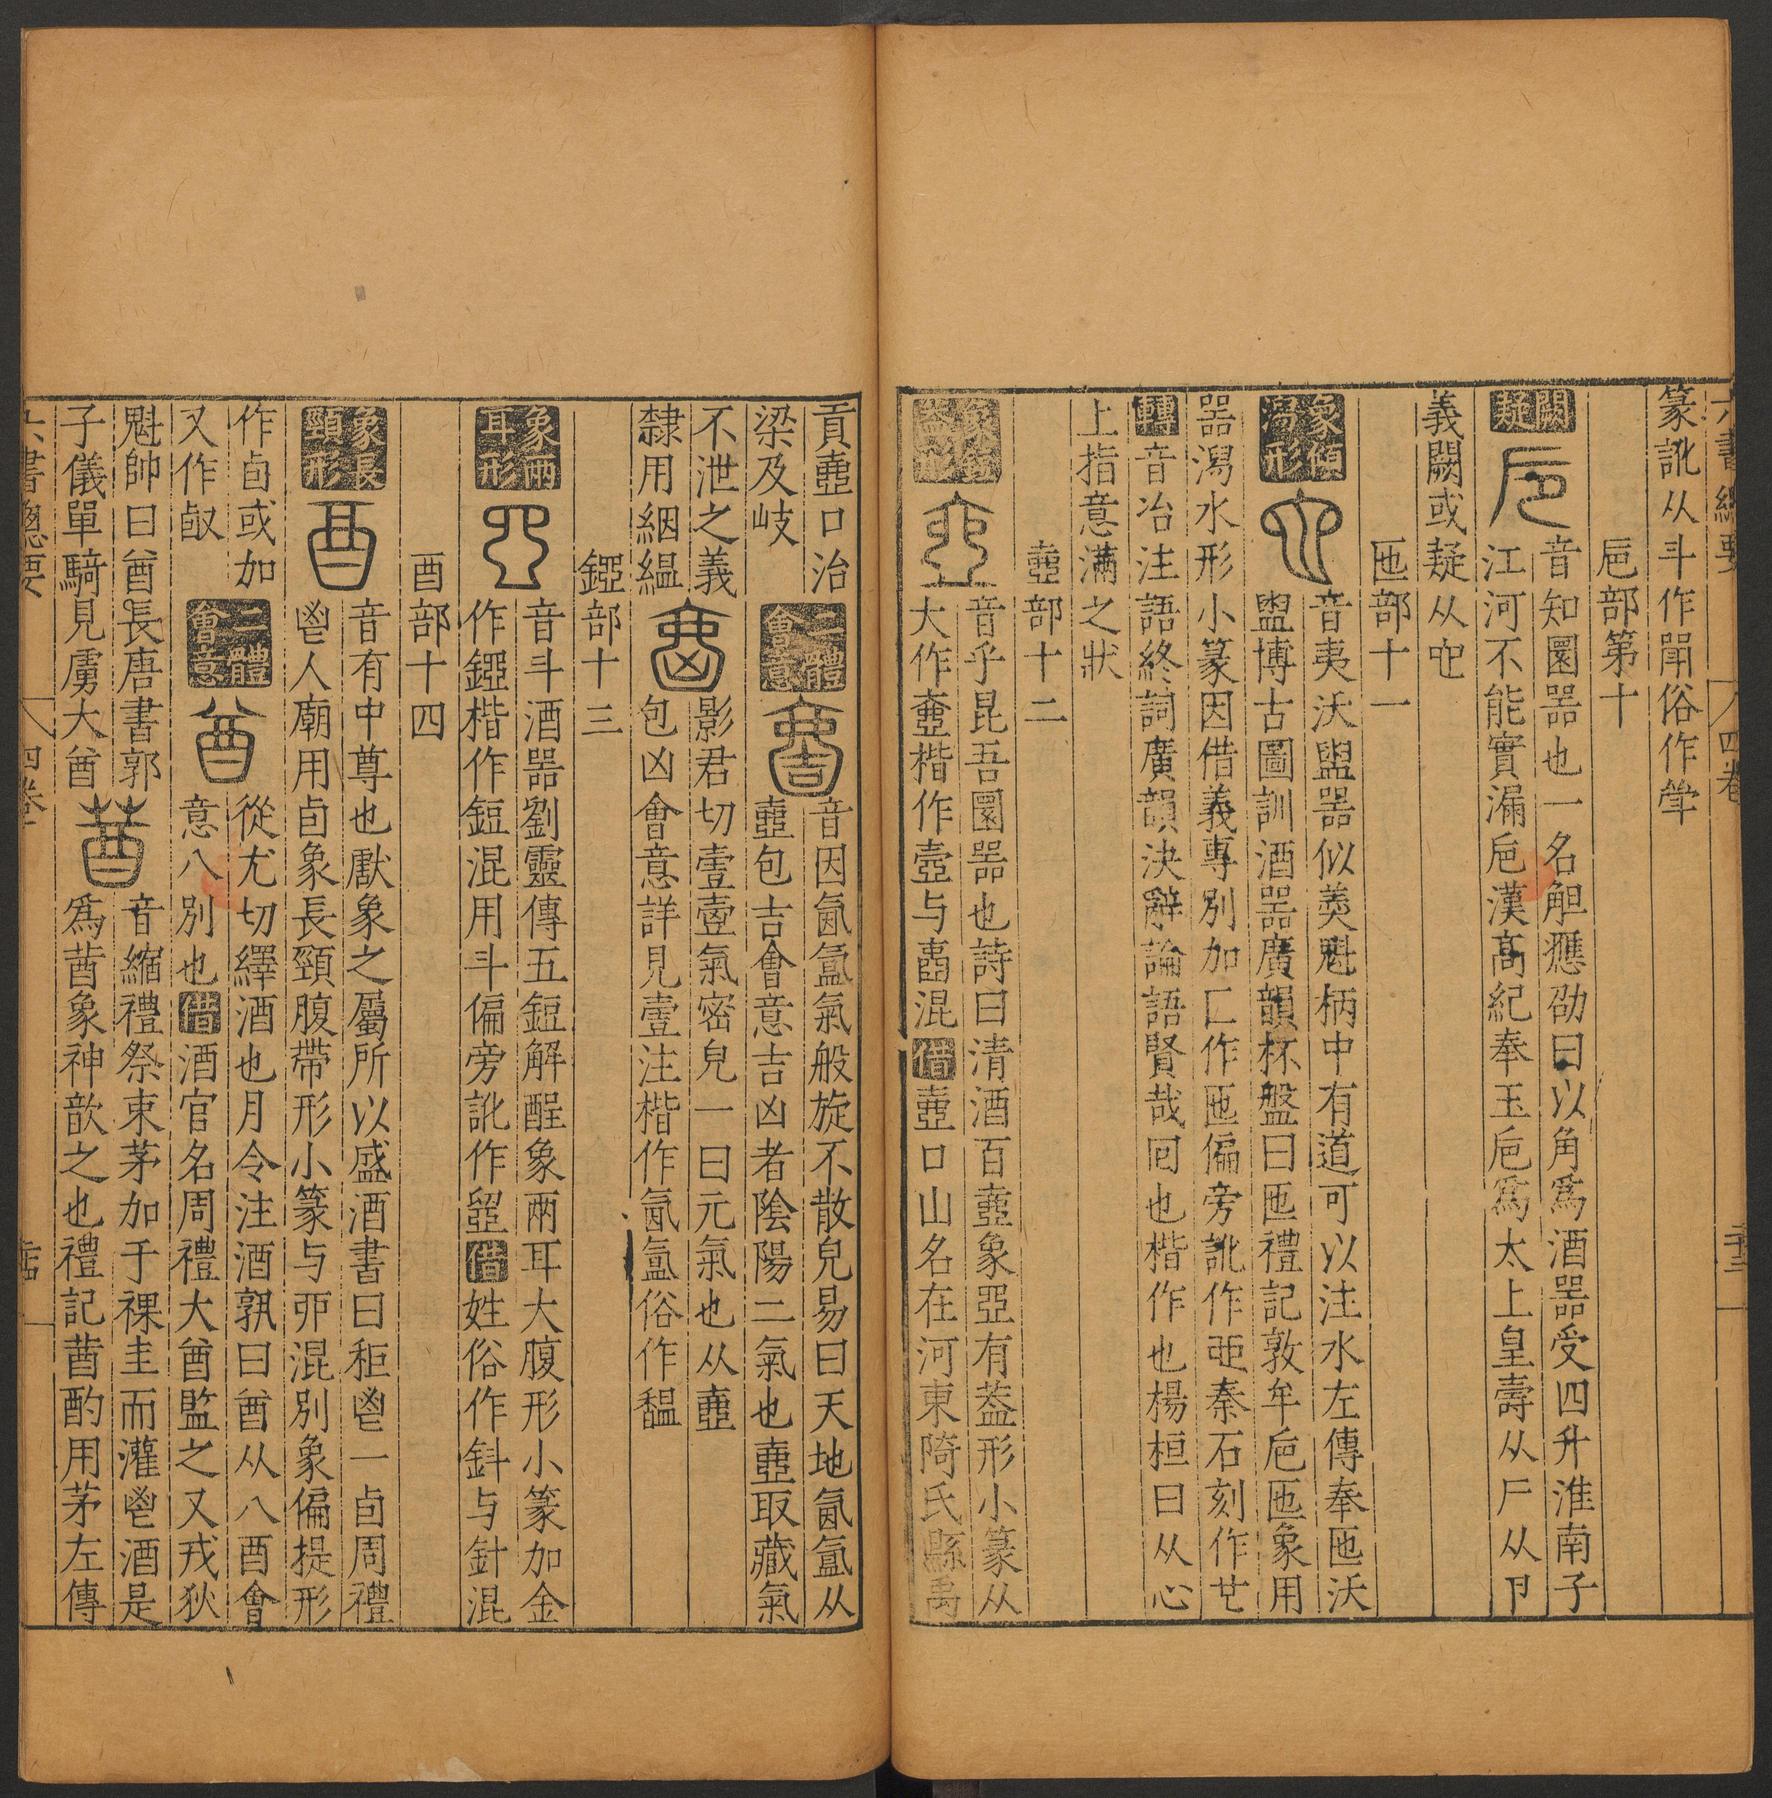 六書緫要 四卷 二十三
篆訛从斗作斝俗作斚
巵部第十
闕疑 巵 音知圜器也一名觛應劭曰以角爲酒器受四升淮南子
江河不能實漏巵漢高紀奉玉巵爲太上皇壽从厂从卩
義闕或疑从㔾
匜部十一
象傾瀉形 也 音夷沃盥器似羹魁柄中有道可以注水左傳奉匜沃
盥博古圖訓酒器廣韻杯盤曰匜禮記敦牟巵匜象用
器瀉水形小篆因借義專別加匚作匜偏旁訛作亜秦石刻作芑
轉音冶注語終詞廣韻決辭論語賢哉囘也楷作也楊桓曰从心
上指意滿之狀
壺部十二
象有葢形 壺 音乎昆吾圜器也詩曰清酒百壺象亞有葢形小篆从
大作壺楷作壺与壼混借壺口山名在河東陭氏縣禹
貢壺口治
梁及岐
二體會意 壹 音因氤氳氣般旋不散皃易曰天地氤氳从
壺包吉會意吉凶者陰陽二氣也壺取藏氣
不泄之義
隸用絪緼
㚃 影君切壹㚃氣密皃一曰元氣也从壺
包凶會意詳見壹注楷作氤氳俗作馧
鋞部十三
象兩耳形 音斗酒器劉靈傳五鋀解酲象兩耳大腹形小篆加金
作鋞楷作鋀混用斗偏旁訛作㿿借姓俗作鈄与針混
酉部十四
象長頸形 酉 音有中尊也厭象之屬所以盛酒書曰秬鬯一卣周禮
鬯人廟用卣象長頸腹帶形小篆与丣混別象偏提形
作卣或加
又作㪜
二體會意 酋 從尤切繹酒也月令注酒孰曰酋从八酉會
意八別也借酒官名周禮大酋監之又戎狄
魁帥曰酋長唐書郭
子儀單騎見虜大酋
莤 音縮禮祭束茅加于祼圭而灌鬯酒是
爲莤象神歆之也禮記莤酌用茅左傳
六書緫要 四卷 二十四